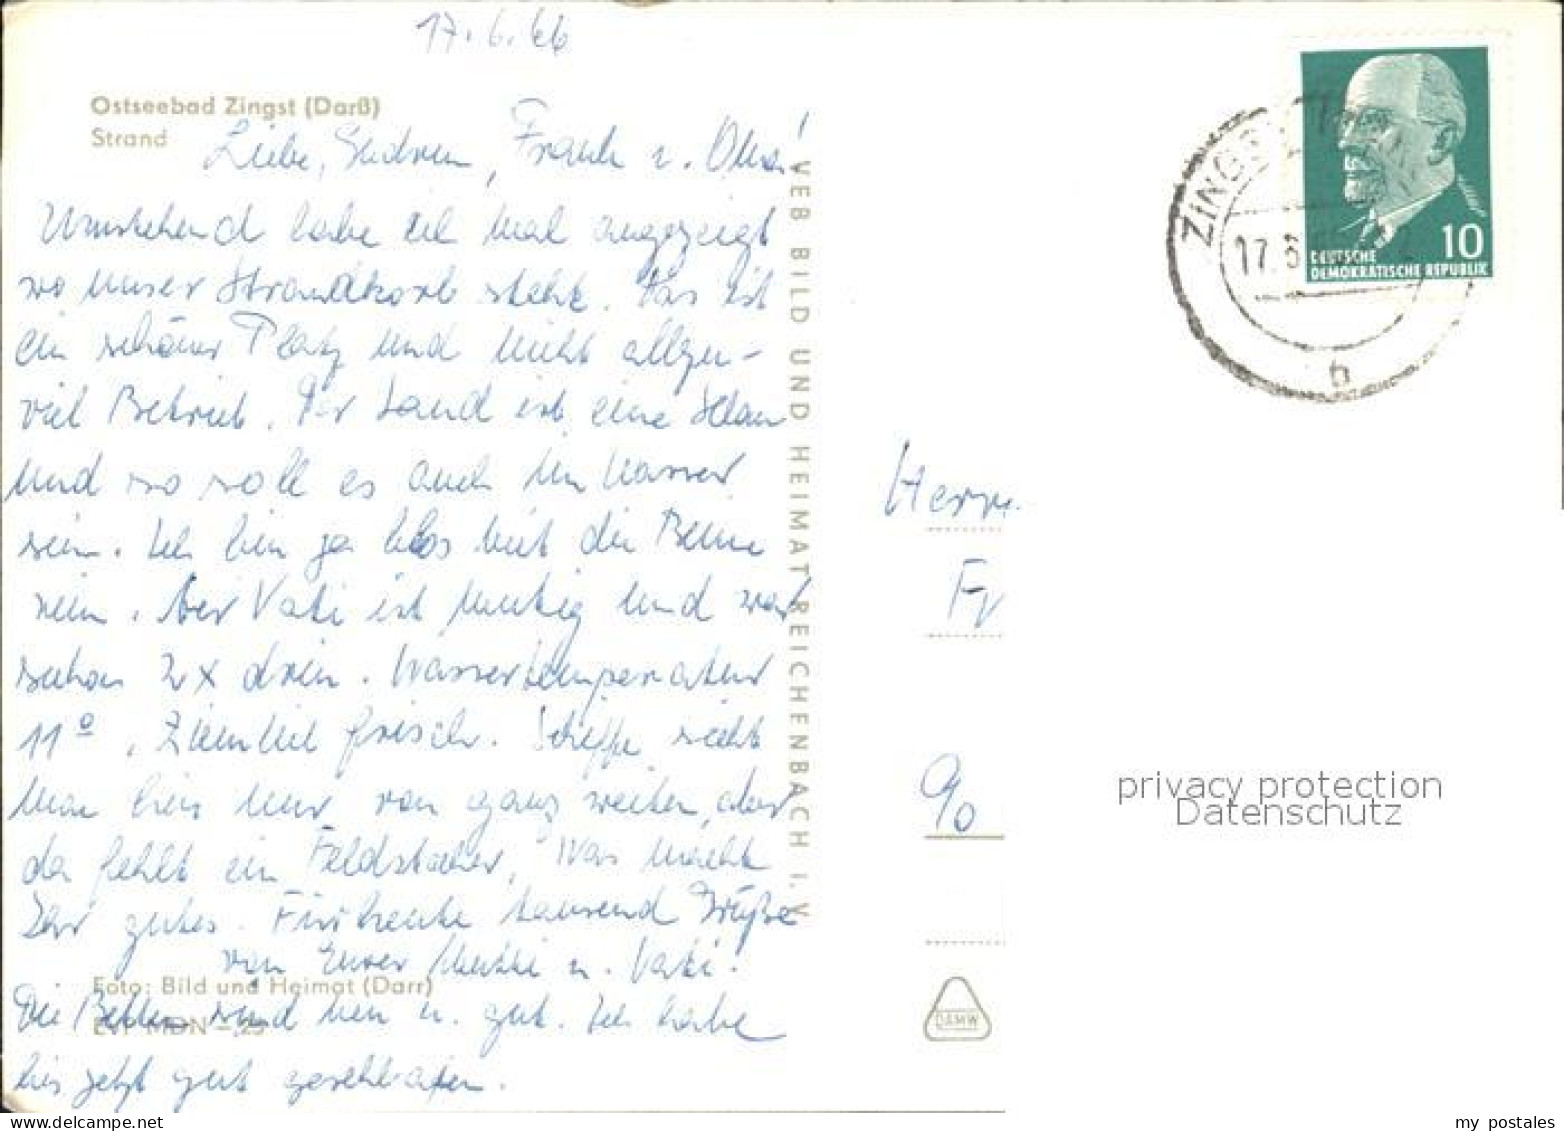 17.6.66
Ostseebad Zingst (Darß)
Strand
Liebe, Frank u. Oma!
Umstehend habe ich mal angezeigt
wo unser Strandkorb steht. Das ist
ein schöner Platz und nicht allzu-
viel Betrieb. Der Sand ist eine Schau
und so soll es auch im Wasser
sein. Ich bin ja blos mit die Beine
rein. Aber Vati ist mutig und war
schon 2x drin. Wassertemperatur
11°, Ziemlich frisch. Schiffe sieht
man hier nur von ganz weiten, aber
da fehlt ein Feldstecher. Was macht
gutes. Für heute tausend Grüße
von Eurer Mutti u. Vati.
Foto: Bild und Heimat (Darr)
Die Betten sind neu u. gut. Ich habe
EVP MDN -,25
bis jetzt gut geschlafen.
VEB BILD UND HEIMAT REICHENBACH I. V.
ZINGST
17.6.
b
10
DEUTSCHE
DEMOKRATISCHE REPUBLIK
Herrn
Fr
c/o
privacy protection
Datenschutz
DAMW
my postales